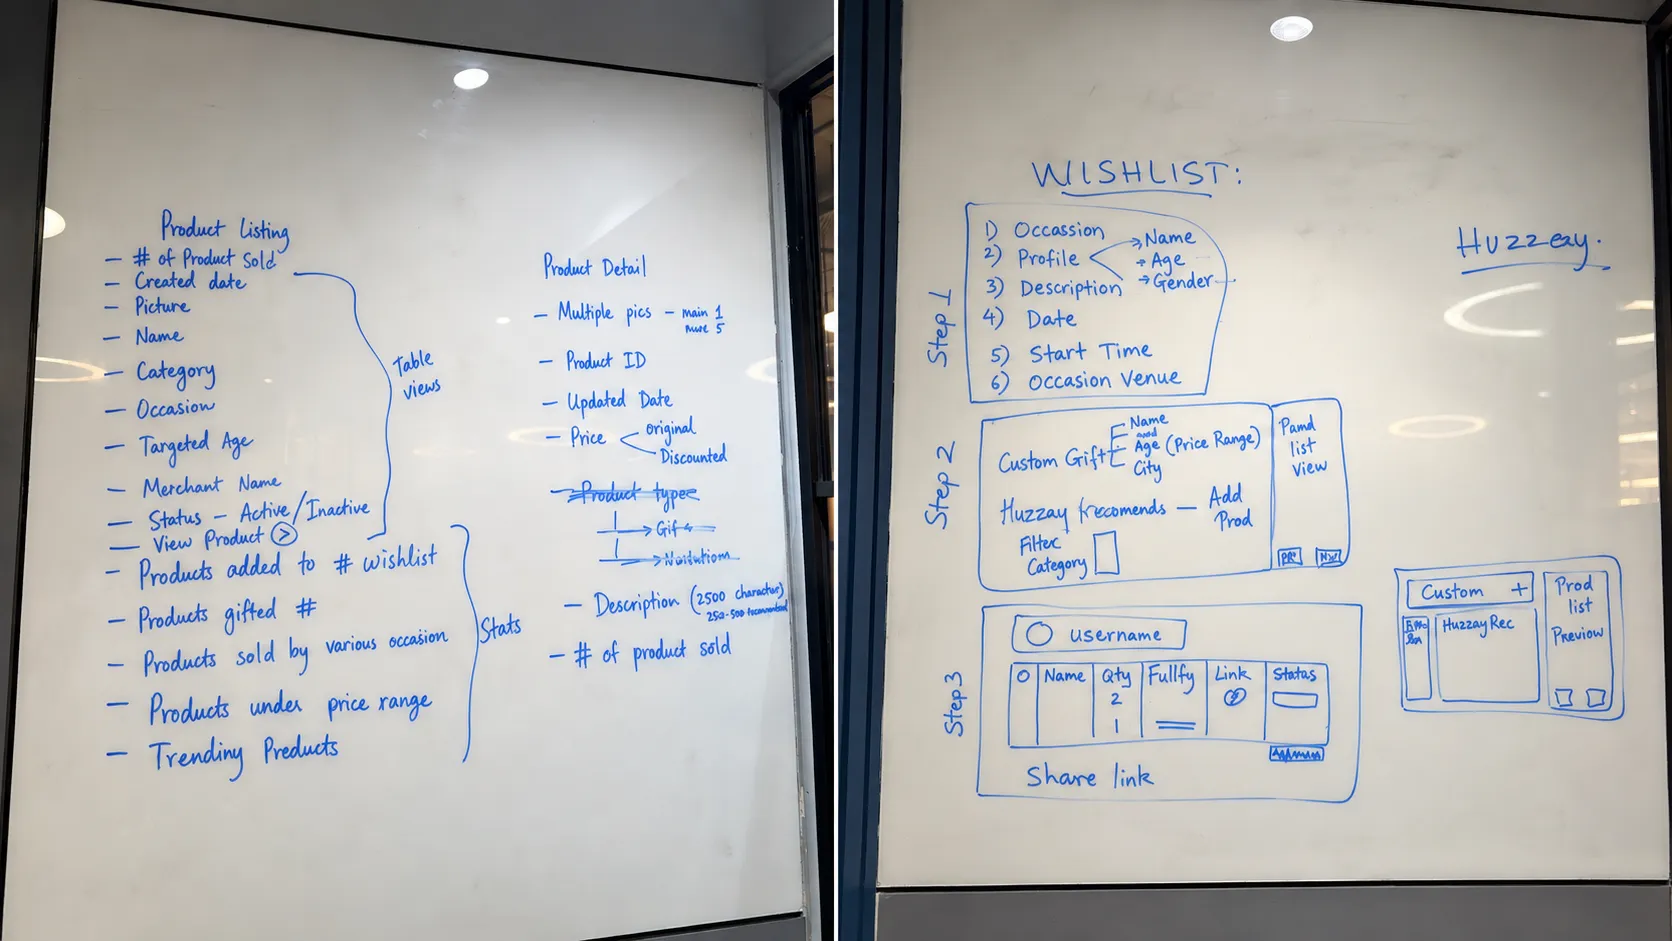 Product Listing
— # of Product Sold
— Created date
— Picture
— Name
— Category
— Occasion
— Targeted Age
— Merchant Name
— Status – Active/Inactive
— View Product >
Table
views
— Products added to # wishlist
— Products gifted #
— Products sold by various occasion
— Products under price range
— Trendiny Preducts
Stats
Product Detail
— Multiple pics – main 1
5
— Product ID
— Updated Date
— Price
original
Discounted
— Product type
→ Gift
— Description (2500 character)
250-500
— # of product sold
WISHLIST:
Step 1
1) Occassion
2) Profile
→ Name
→ Age
→ Gender
3) Description
4) Date
5) Start Time
6) Occasion Venue
Step 2
Custom Gift
Name
Age (Price Range)
City
Huzzay recomends — Add
Prod
Filter
Category
list
view
Step 3
username
Name Qty Fullfy Link Status
2
1
Share link
Huzzeay.
Custom +
Huzzay Rec
Prod
list
Preview